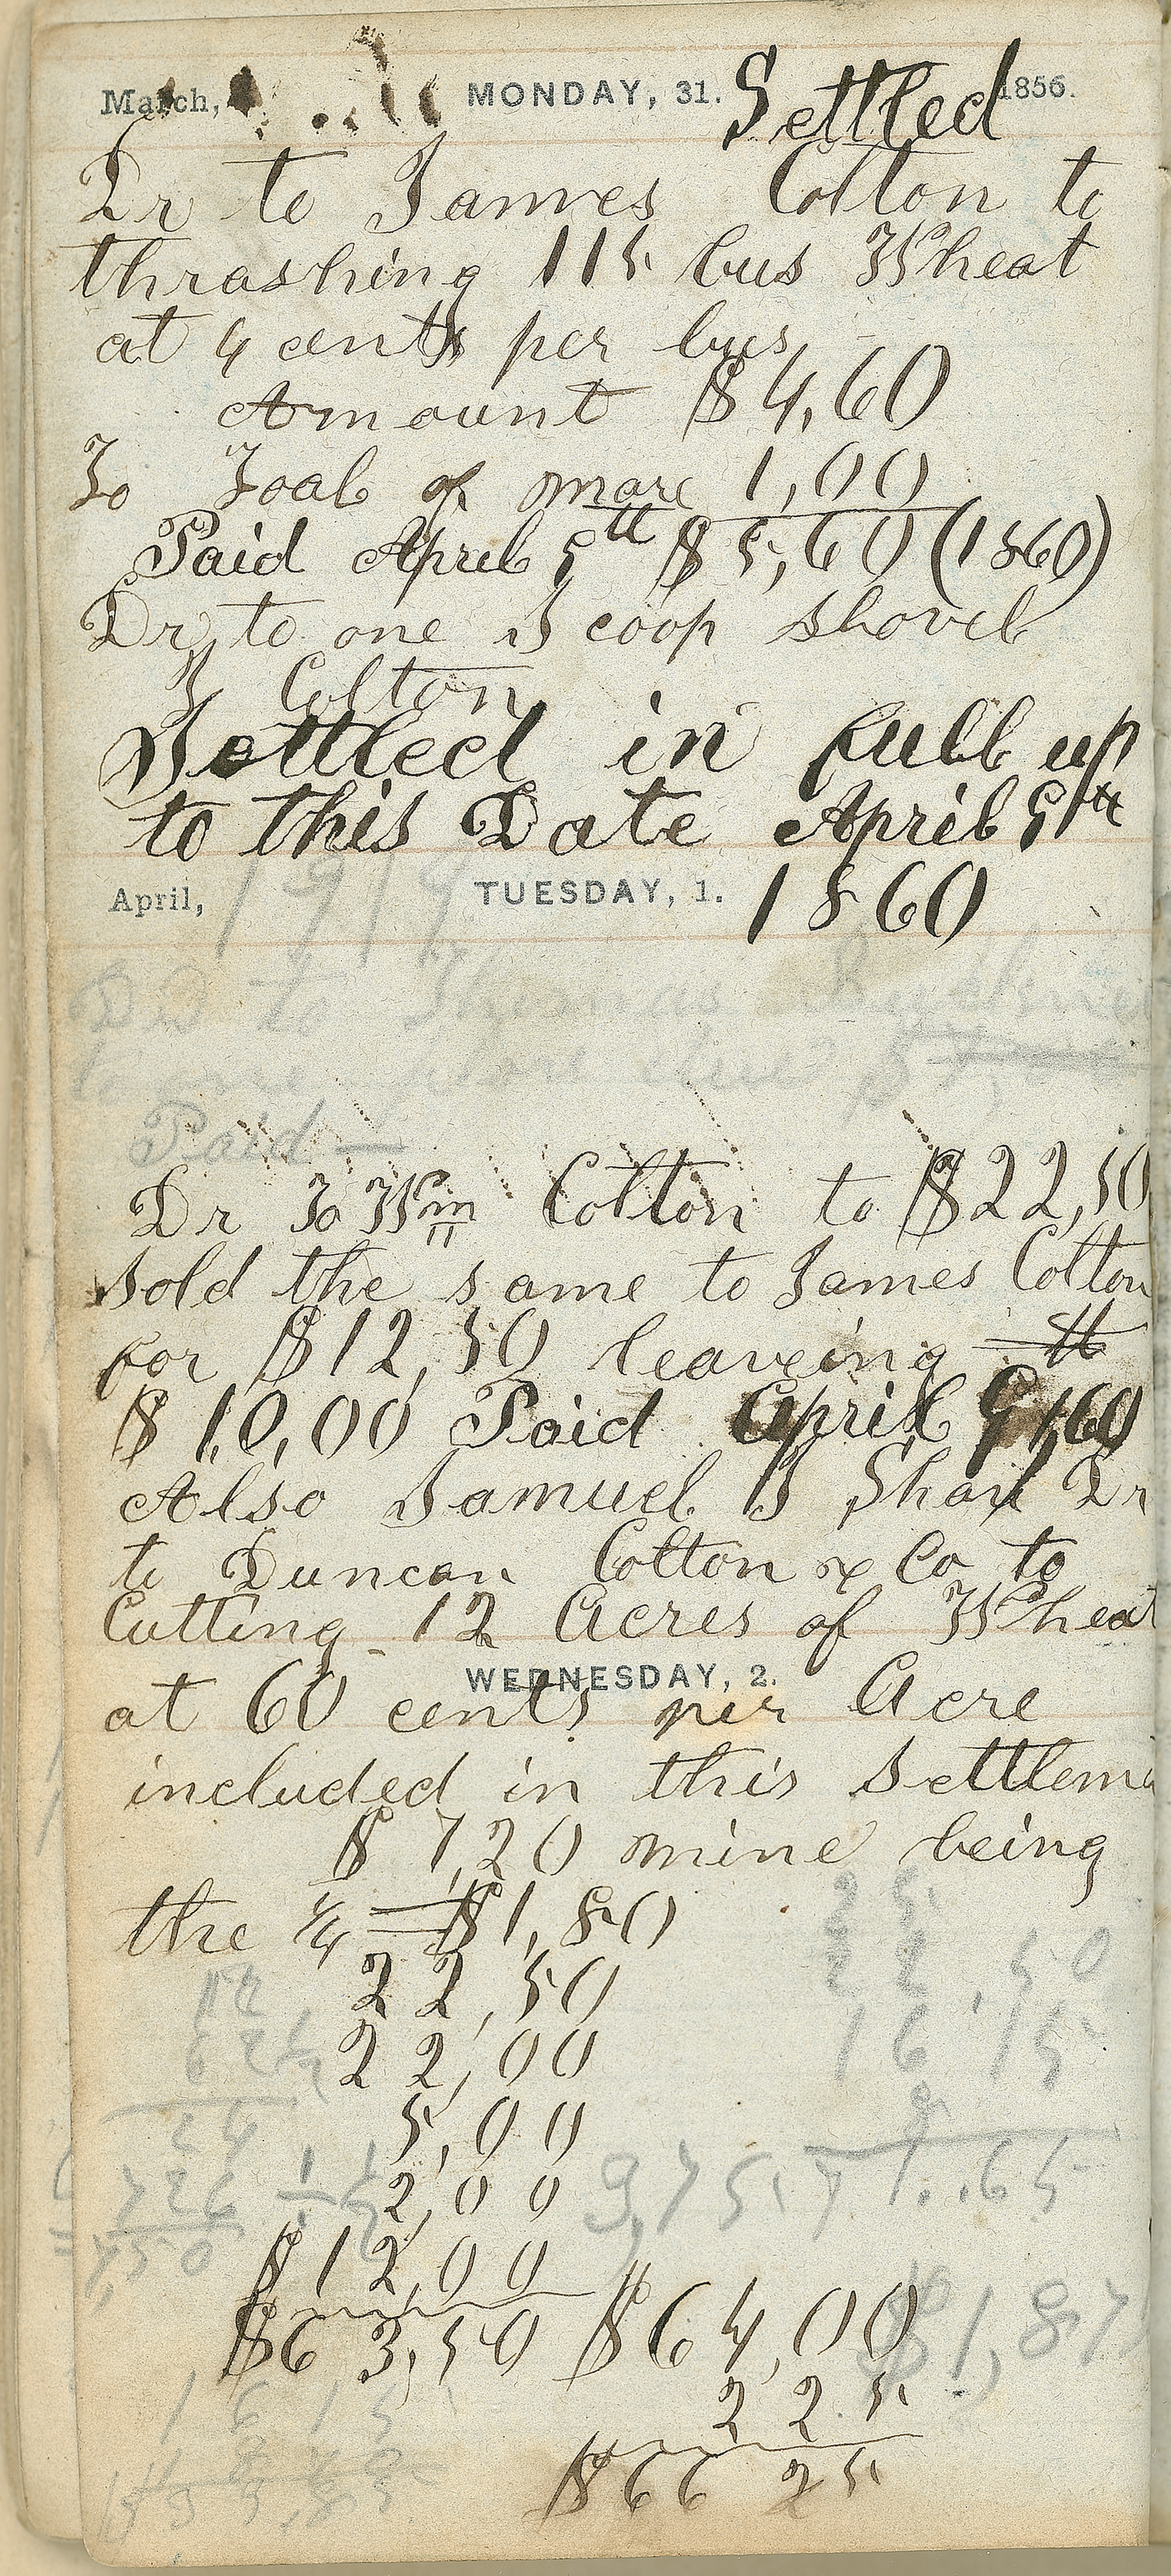 March, MONDAY, 31. Settled 1856.
Dr to James Colton to
thrashing 115 bus Wheat
at 4 cents per bus
Amount $4,60
To Foal of mare 1,00
Paid April 5th $5,60 (1860)
Dr to one Scoop shovel
J Colton
Settled in full up
to this Date April 5th
April, TUESDAY, 1. 1860
Dr to Thomas
Paid —
Dr To Wm Colton to $22,50
Sold the same to James Colton
for $12,50 leaveing
$10,00 Paid April 5th 60
Also Samuel T Shaw Dr
to Duncan Colton & Co to
Cutting 12 Acres of Wheat
WEDNESDAY, 2.
at 60 cents per Acre
included in this Settleme
$7,20 mine being
the 1/4 = $1,80
22,50
22,00
5,00
2,00
$12,00
$63,50 $64,00
2 25
$66 25
25
22,50
16,15
9,75
1.65
$1,87